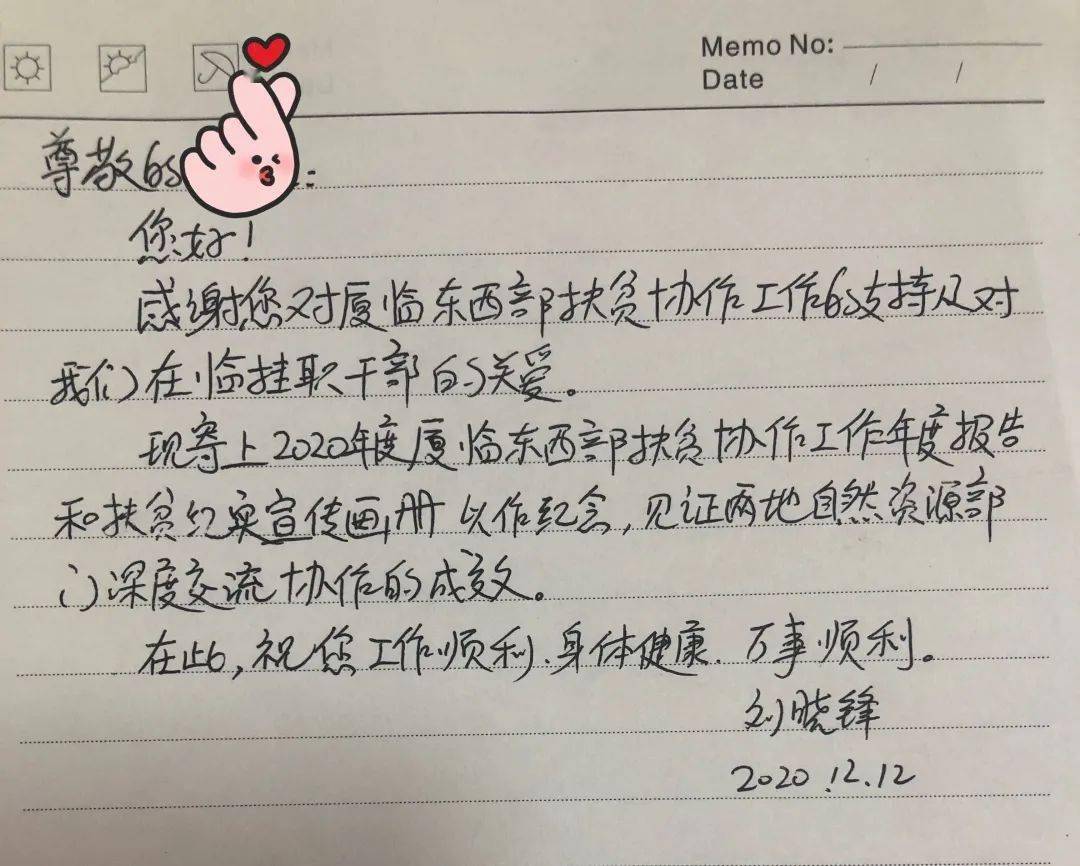 Memo No:
Date / /
尊敬的:
您好!
感谢您对厦临东西部扶贫协作工作的支持及对
我们在临挂职干部的关爱。
现寄上2020年度厦临东西部扶贫协作工作年度报告
和扶贫纪实宣传画册以作纪念,见证两地自然资源部
门深度交流协作的成效。
在此,祝您工作顺利、身体健康、万事顺利。
刘晓锋
2020.12.12